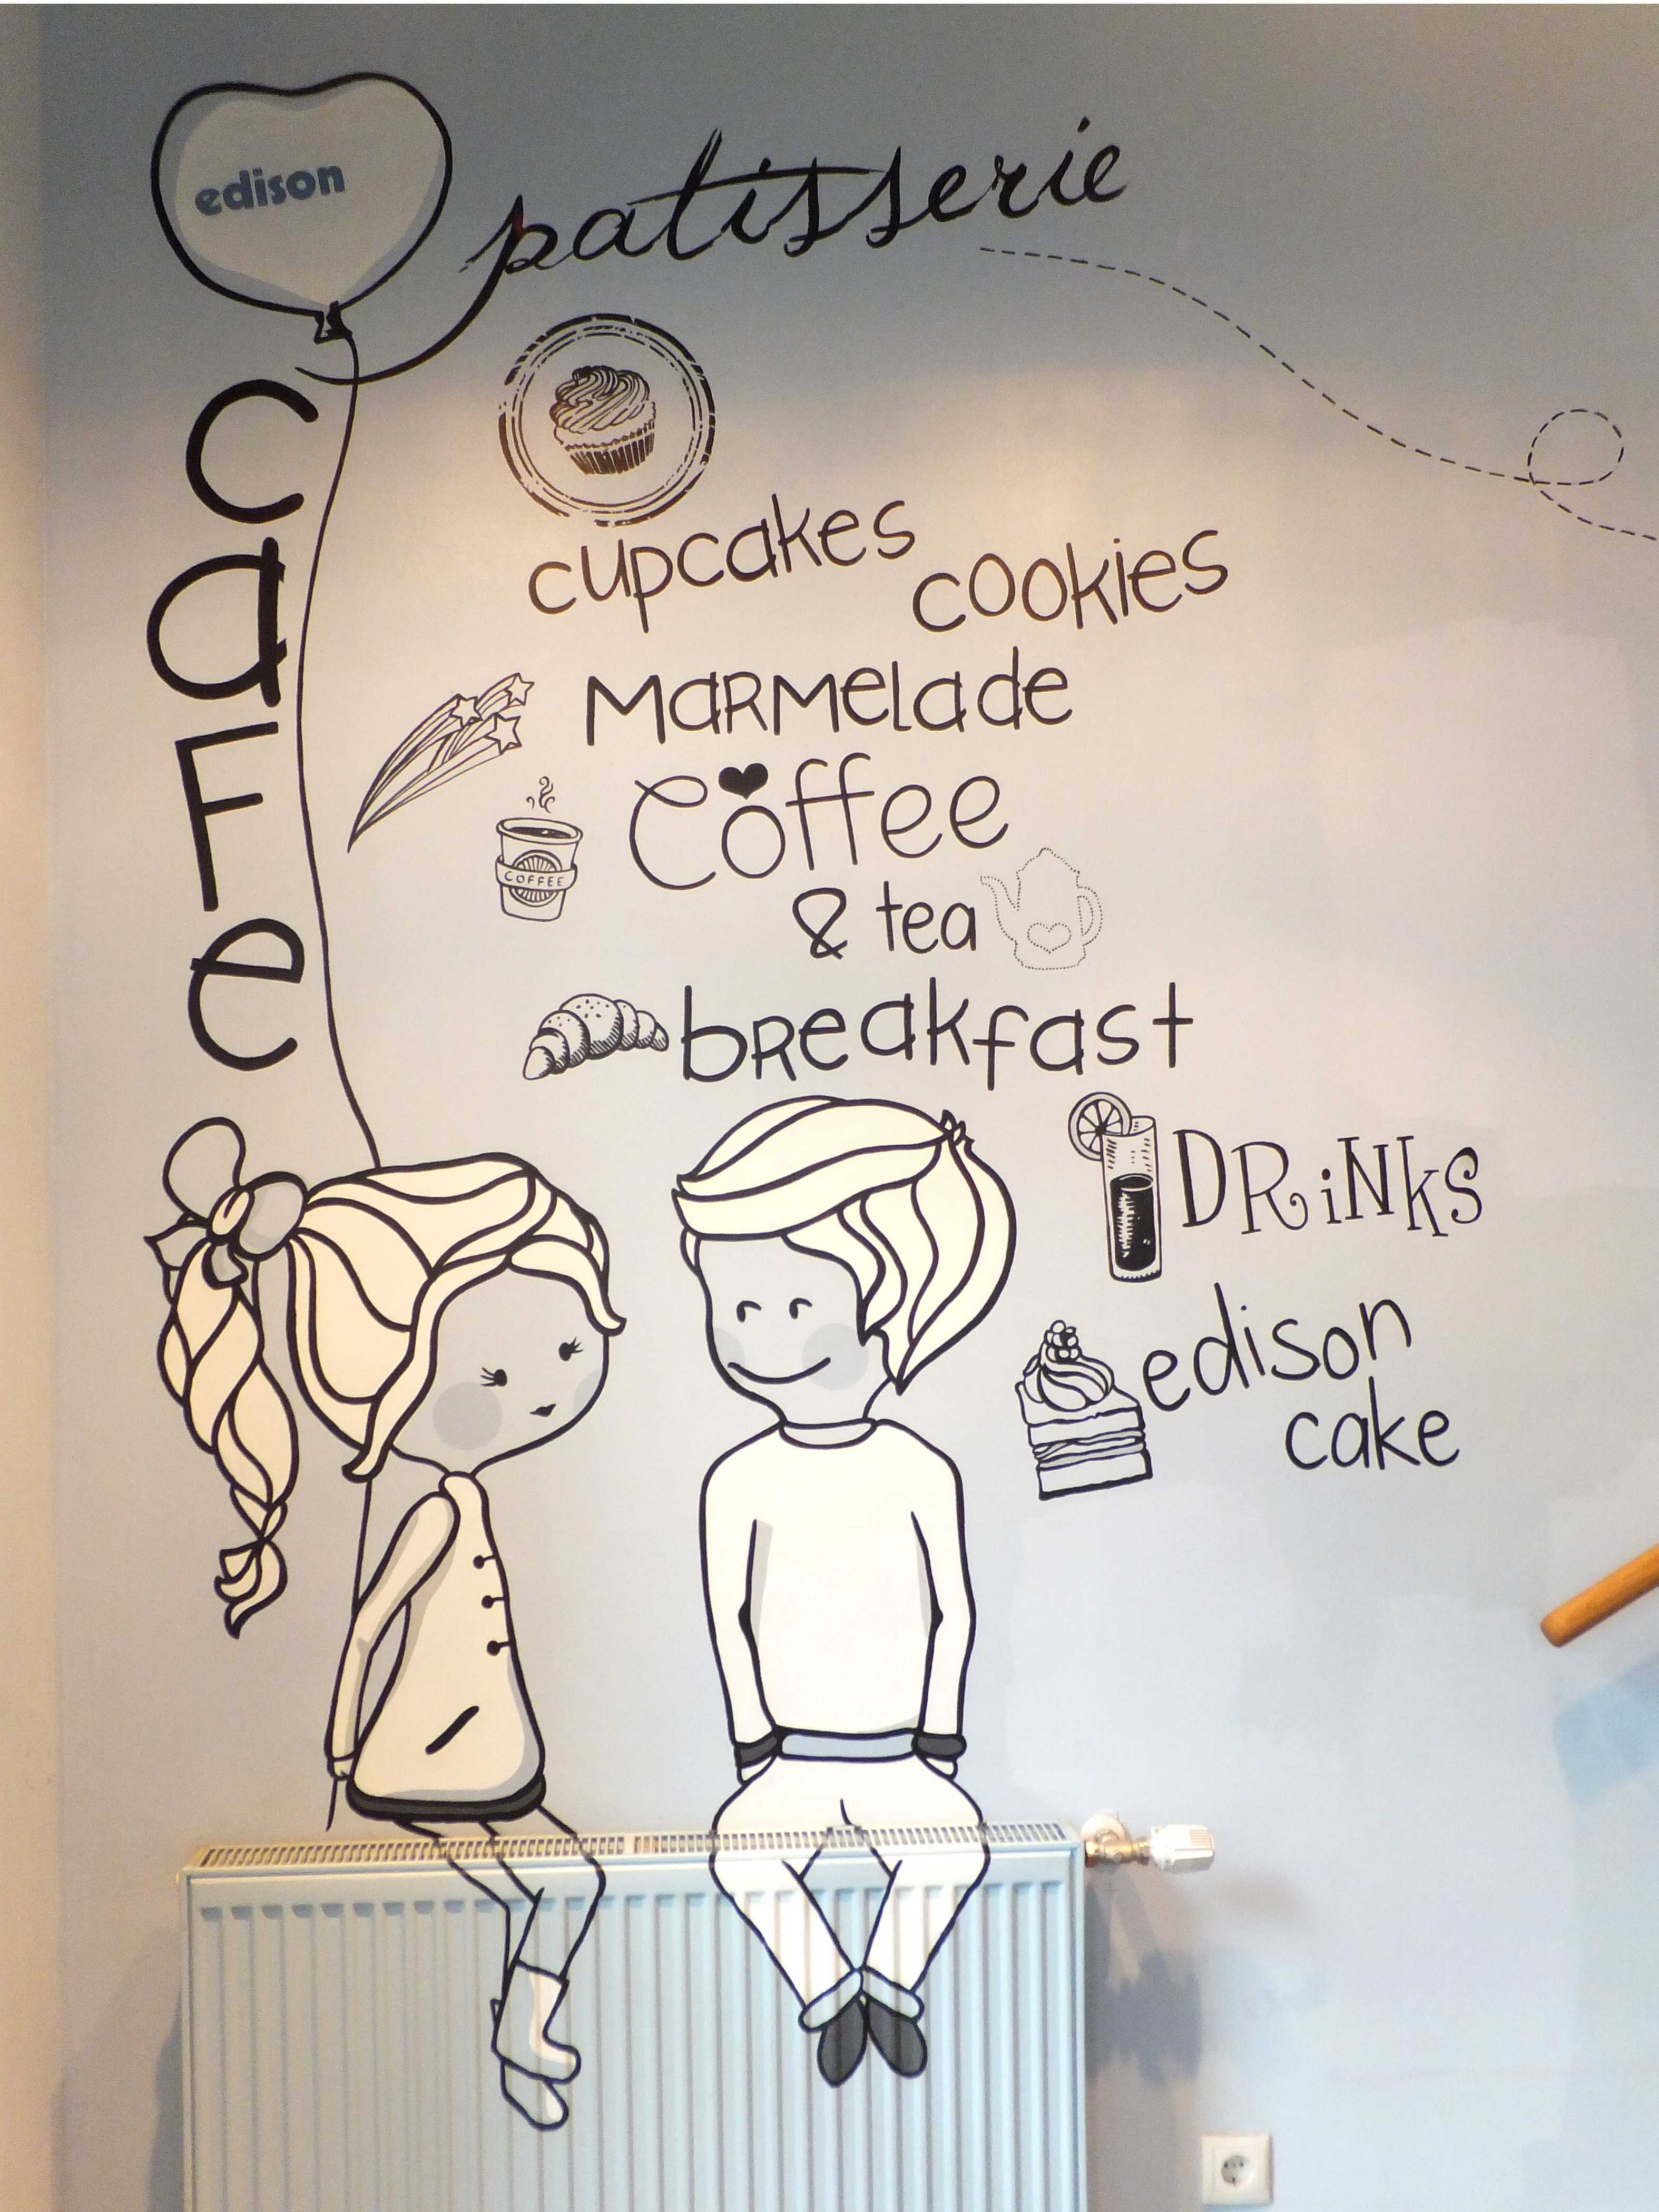 edison
patisserie
cafe
cupcakes
cookies
Marmelade
Coffee
COFFEE
& tea
breakfast
DRiNks
edison
cake